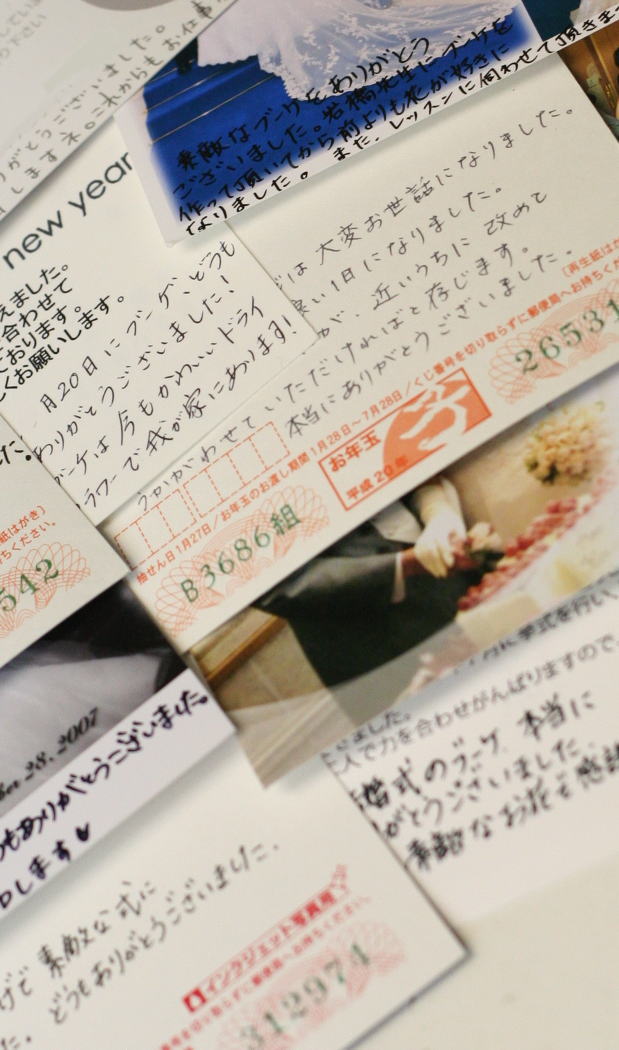 がとうございました。
します ネ。これからもお仕事
素敵なブーケをありがとう
ございました。岩橋先生にブーケを
作って頂いてから前よりも花が好きに
なりました。また、レッスンに伺わせて頂きま
new year
えました。
合わせて
ております。
くお願いします。
月20日にブーケ、どうも
ありがとうございました！
ブーケは今もかわいいドライ
フラワーで我が家にあります！
は 大変お世話になりました。
良い1日になりました。
が、近いうちに 改めて
うかがわせていただければと存じます。
本当にありがとうございました。
お年玉
平成20年
抽せん日1月27日／お年玉のお渡し期間1月28日～7月28日／くじ番号を切り取らずに郵便局へお持ちくだ
(再生紙はが
B3686組
26531
紙はがき)
ちください。
542
28.2007
もありがとうございました
します
月に挙式を行い、
ました。
二人で力を合わせがんばりますので、
婚式のブーケ、本当に
がとうございました。
素敵なお花を感
げで 素敵な式に
た。どうもありがとうございました。
インクジェット写真用
番号を切り取らずに郵便局へお持ちください。
312974